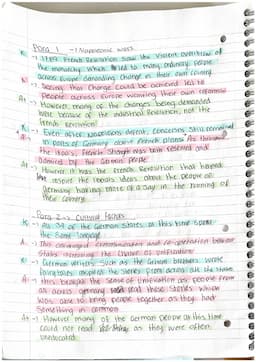 Para 1 → Napoleonic wars
K → 1789 French Revolution saw the violent overthrow of
the monarchy which led to many ordinary people
across Europe demanding change in their own country
A → Seeing that change could be achieved led to
people across Europe wanting their own reforms
A+ → However many of the changes being demanded
were because of the industrial Revolution, not the
French Revolution
K → Even after Napoleons defeat, concerns still remained
in parts of Germany about French plans. As
the 1900's, French strength was both resented and
admired by the German people
A+ → However it was the French Revolution that helped
inspire the liberals ideas about the people of
Germany having more of a say in the running of
their country.
Para 2 → Cultural factors
K → As 39 of the German states at this time spoke
the same language
A → This encouraged communication and co-operation between
states increasing the chance of unification
K → German writers such as the Grimm brothers wrote
fairytales inspired by stories from across all the states
A → this brought the sense of unification as people from
all across Germany read these stories which
was able to bring people together as they had
something in common
A+ → However many of the German people at this time
could not read as they were often
uneducated.